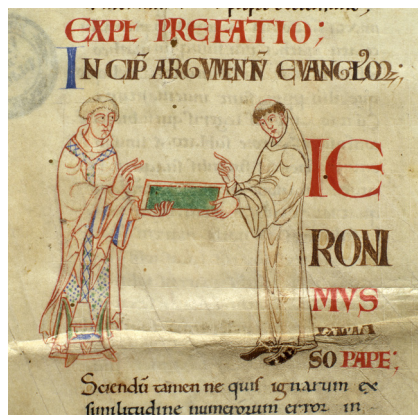 EXPL PREFATIO;
INCIP ARGVMENTŪ EVANGLOꝜ;
IE
RONI
MVS
DAMA
SO PAPE;
Sciendū tamen ne quis ignarum ex
similitudine numerorum error in